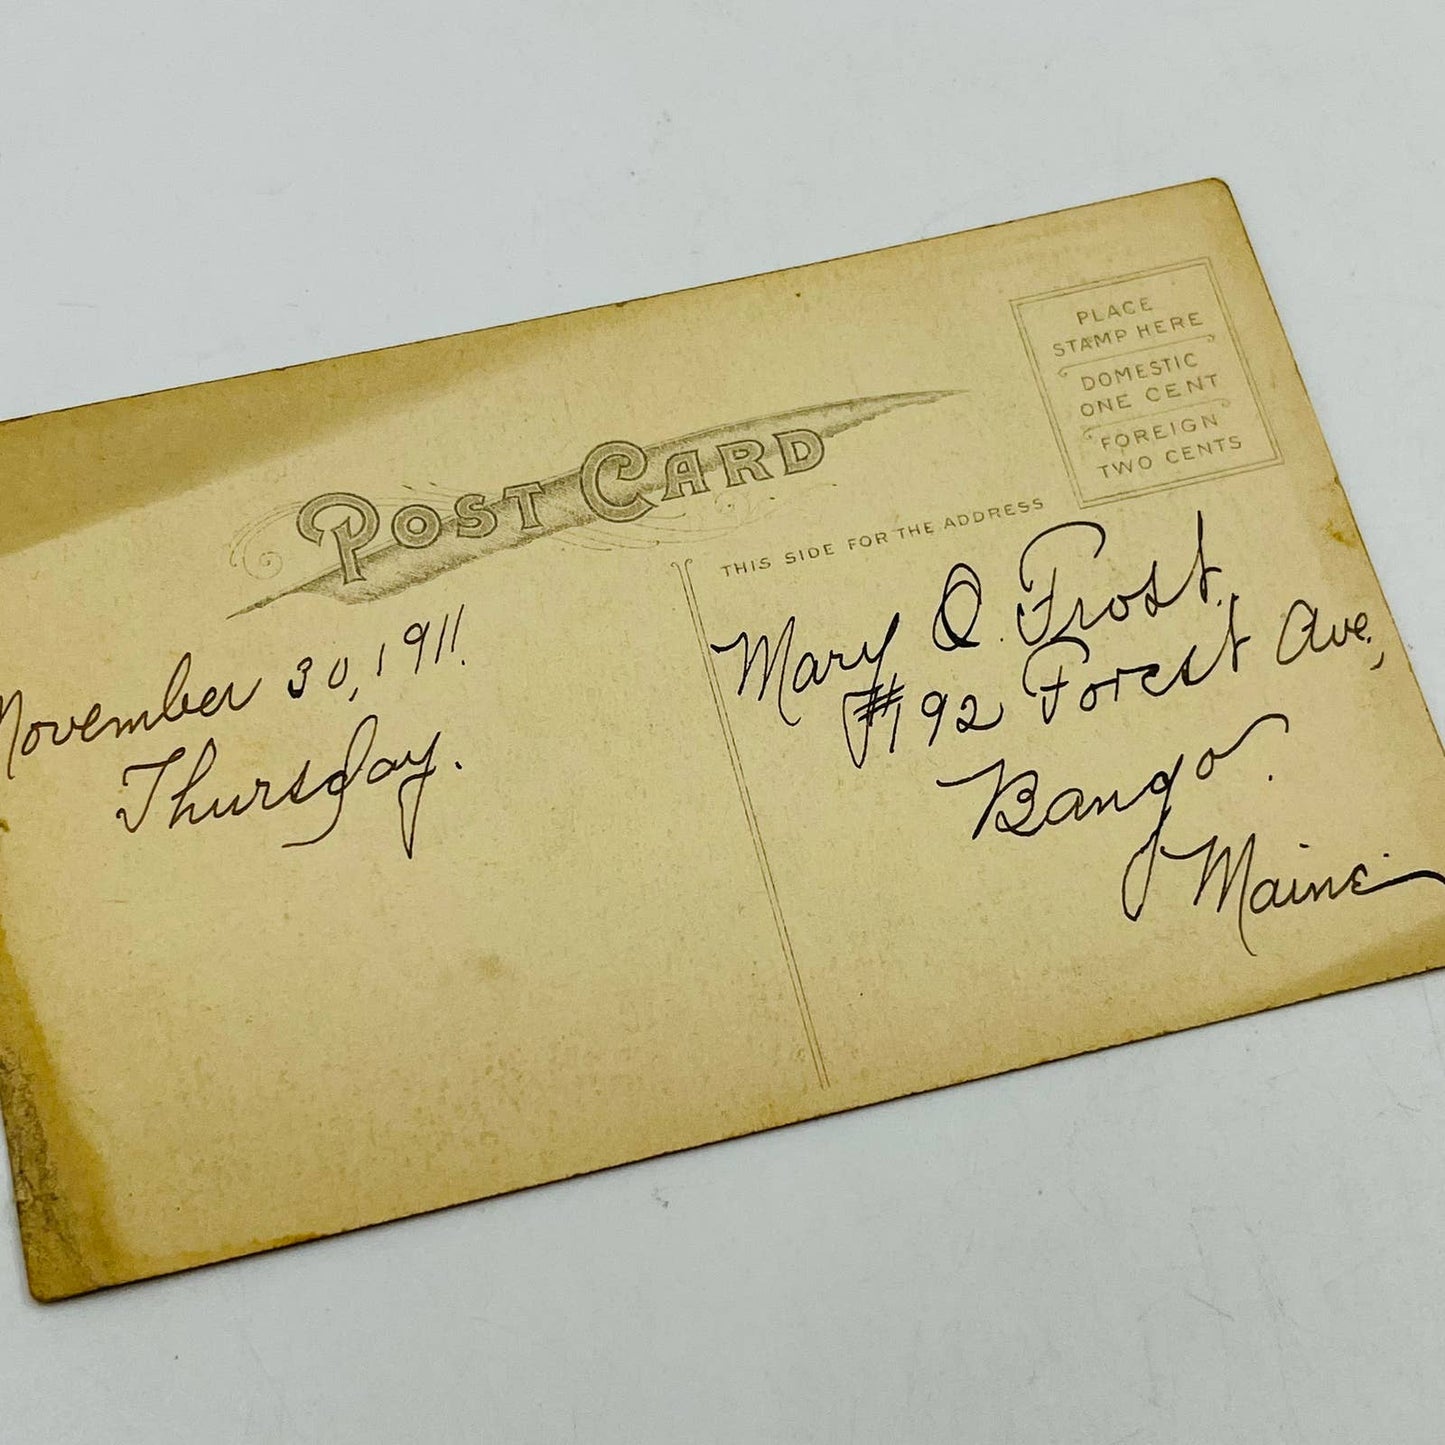 PLACE
STAMP HERE
DOMESTIC
ONE CENT
FOREIGN
TWO CENTS
POST CARD
THIS SIDE FOR THE ADDRESS
November 30, 1911.
Thursday.
Mary O. Frost.
#192 Forest Ave.,
Bangor.
Maine.